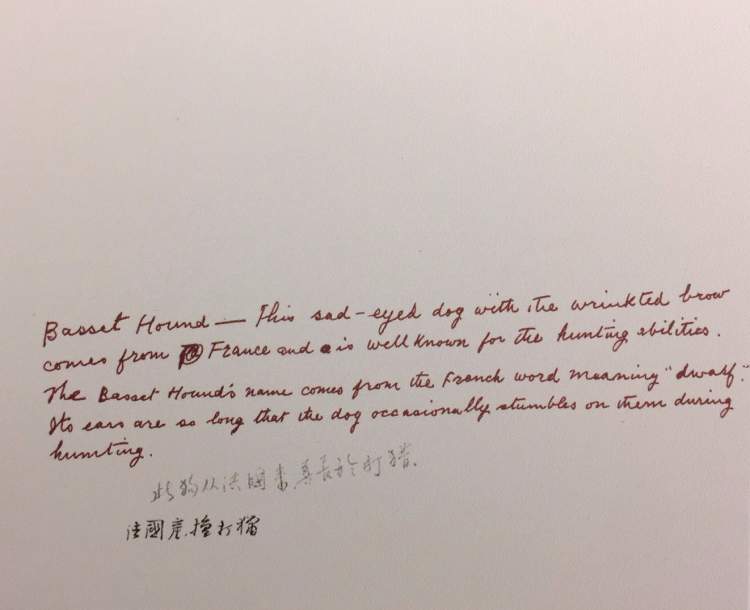 Basset Hound — This sad-eyed dog with the wrinkted brow
comes from France and is well known for the hunting abilities.
The Basset Hound's name comes from the French word meaning "dwarf."
Its ears are so long that the dog occasionally stumbles on them during
humting.
此狗从法國來善長於打猎.
法國产.擅打猫